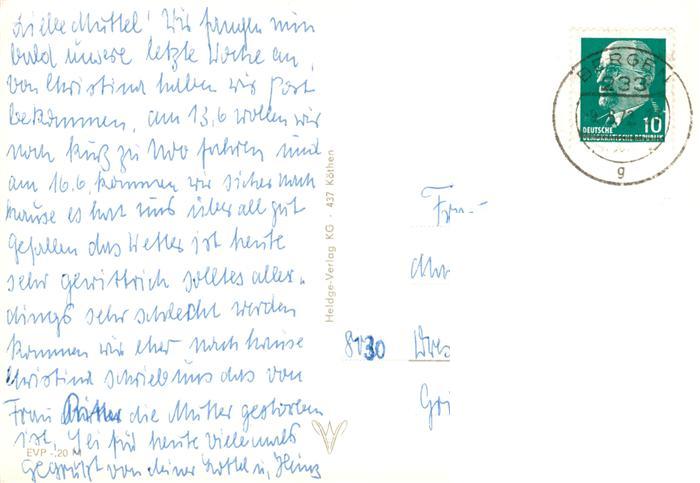 Liebe Muttel! Wir fangen nun
bald unsere letzte Woche an,
von Christina haben wir Post
bekommen, am 13.6 wollen wir
noch kurz zu Uvo fahren und
am 16.6. kommen wir sicher nach
hause es hat uns über all gut
gefallen das Wetter ist heute
sehr gewittrich solltes aller-
dings sehr schlecht werden
kommen wir eher nach hause
Christina schrieb uns das von
Frau Ritter die Mutter gestorben
ist. Sei für heute vielemals
gegrüßt von deiner Lottel u, Heinz
EVP -.20 M
Heldge-Verlag KG · 437 Köthen
BERGEN
233
g
DEUTSCHE
DEMOKRATISCHE REPUBLIK
10
8130